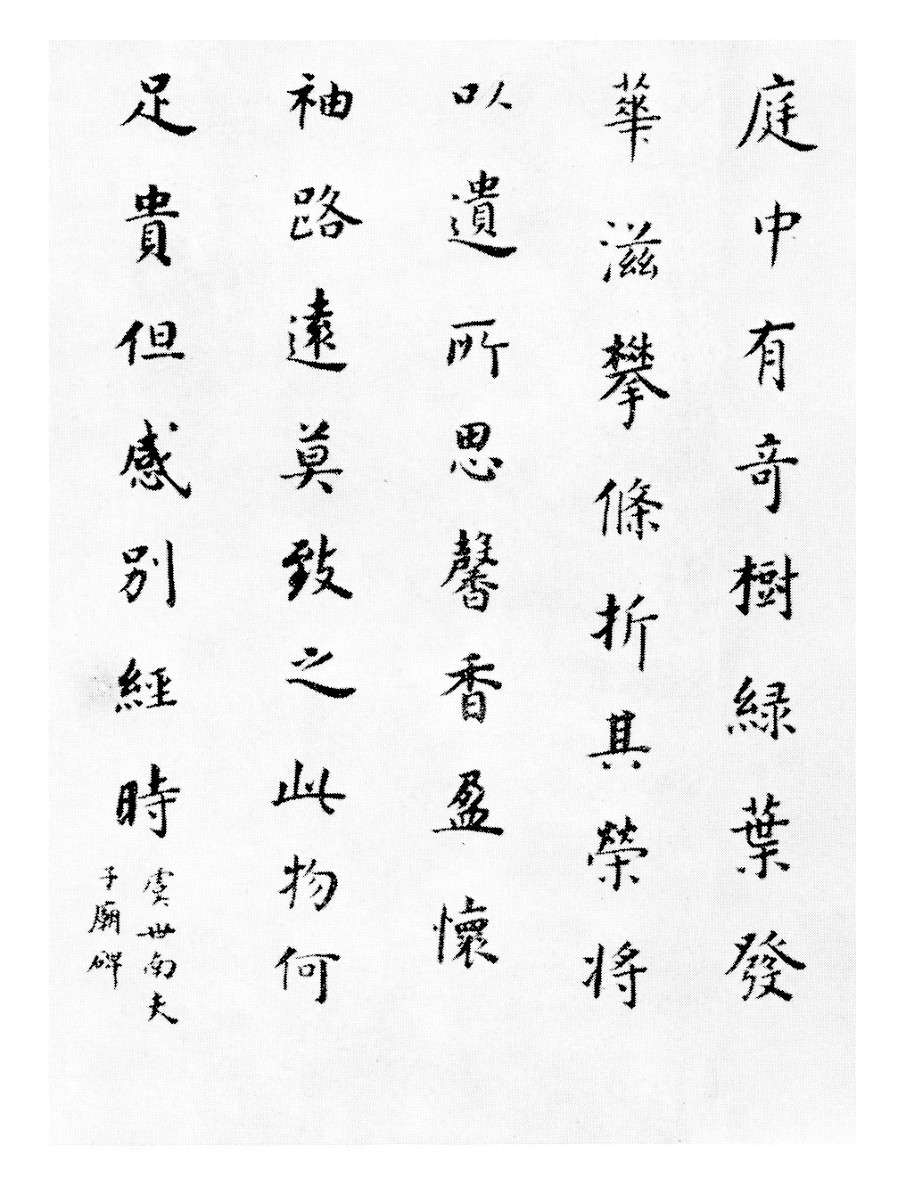 庭中有奇樹緑葉發
華滋攀條折其榮将
以遺所思馨香盈懷
袖路遠莫致之此物何
足貴但感別經時
虞世南夫
子廟碑